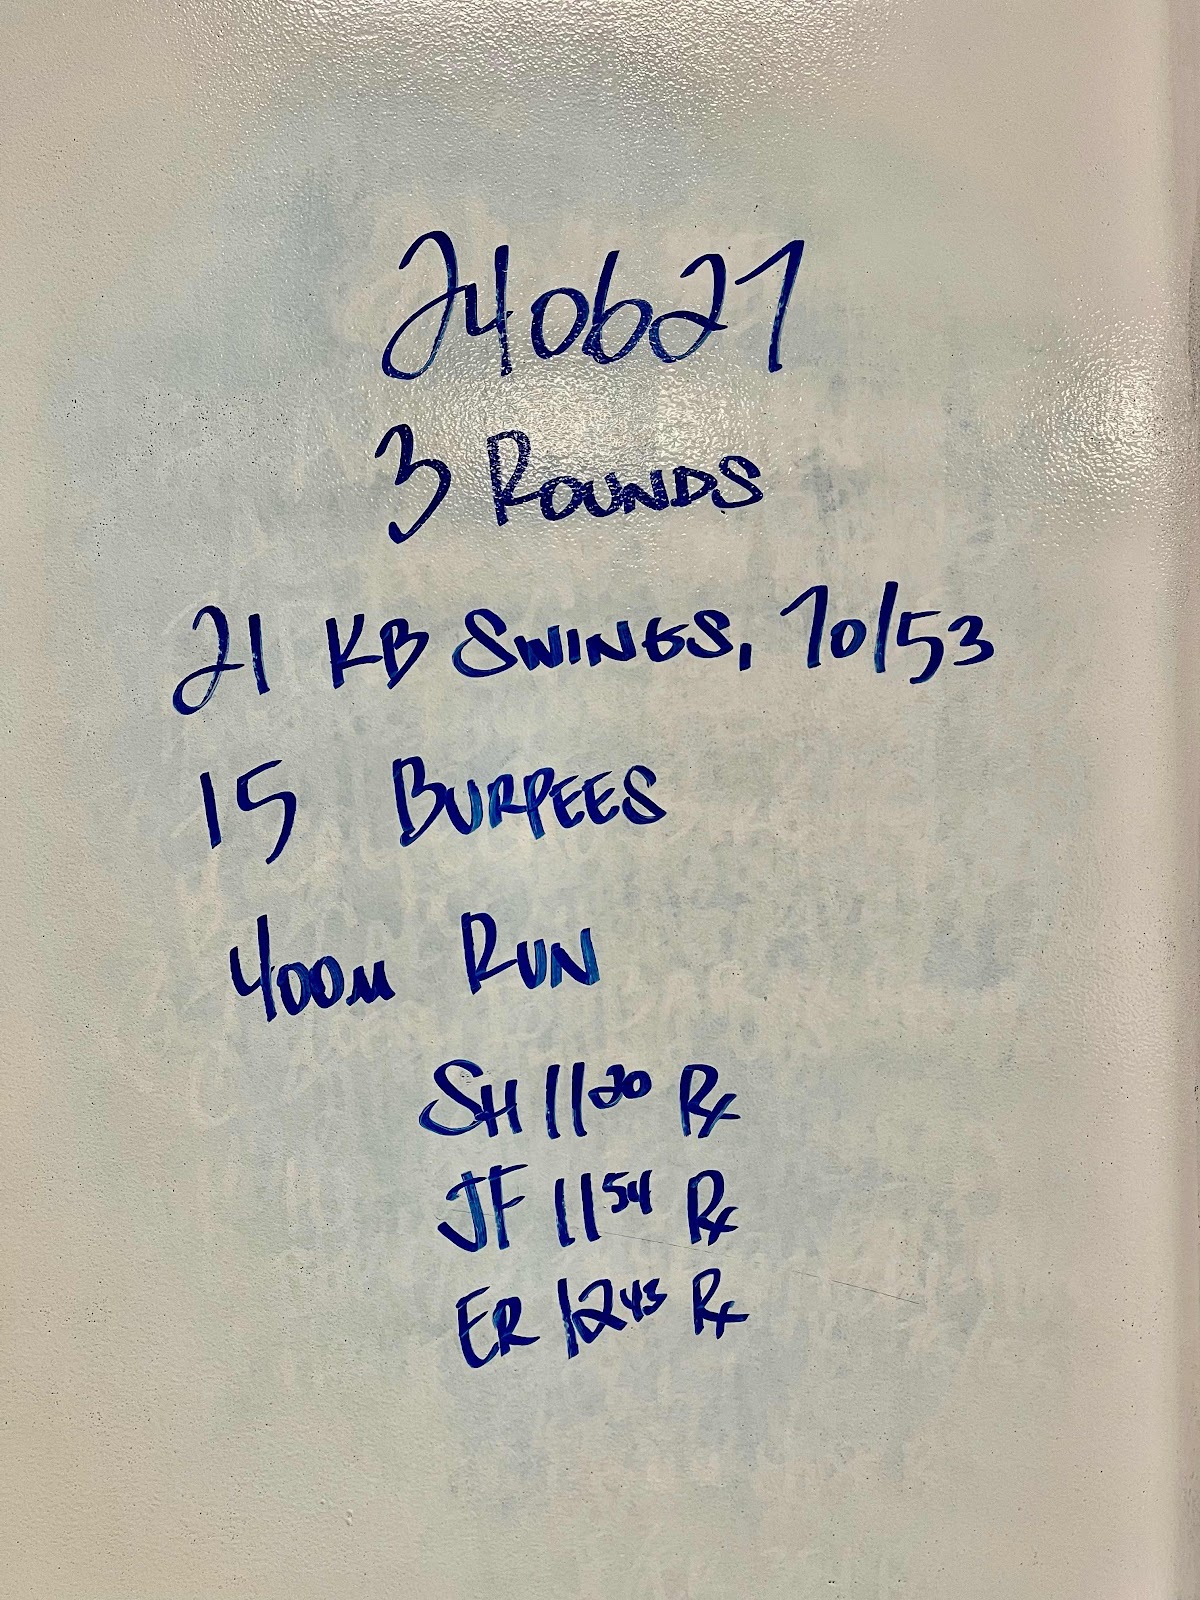 240627
3 ROUNDS
21 KB SWINGS, 70/53
15 BURPEES
400M RUN
SH 1120 Rx
JF 1154 Rx
ER 1243 Rx